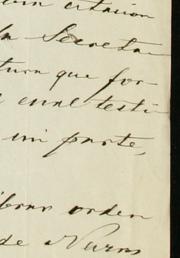 citacion
la Secreta-
tura que for-
cual testi
mi parte,
librar orden
de Navas